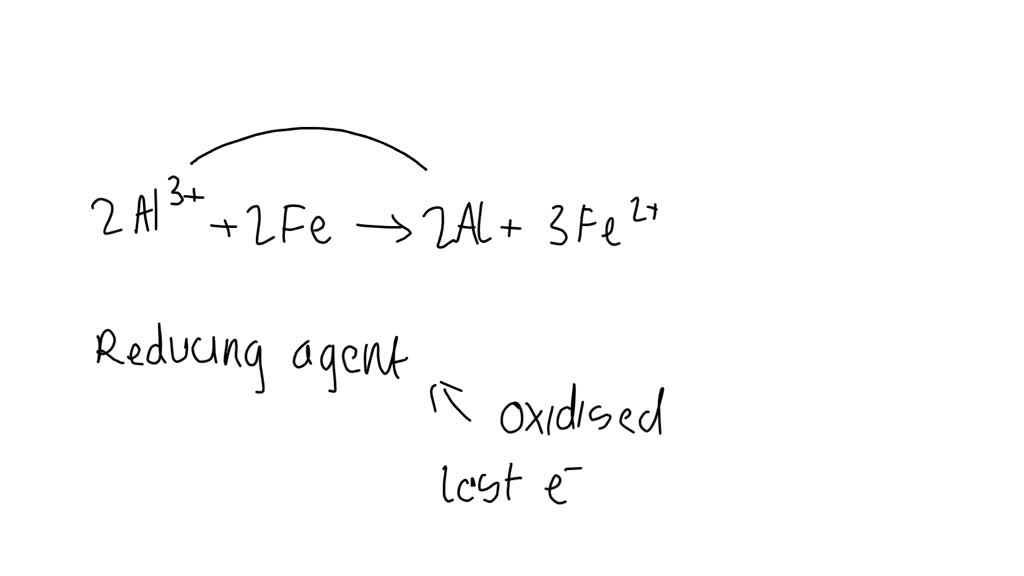 2Al³⁺ + 2Fe → 2Al + 3Fe²⁺
Reducing agent
oxidised
lost e⁻